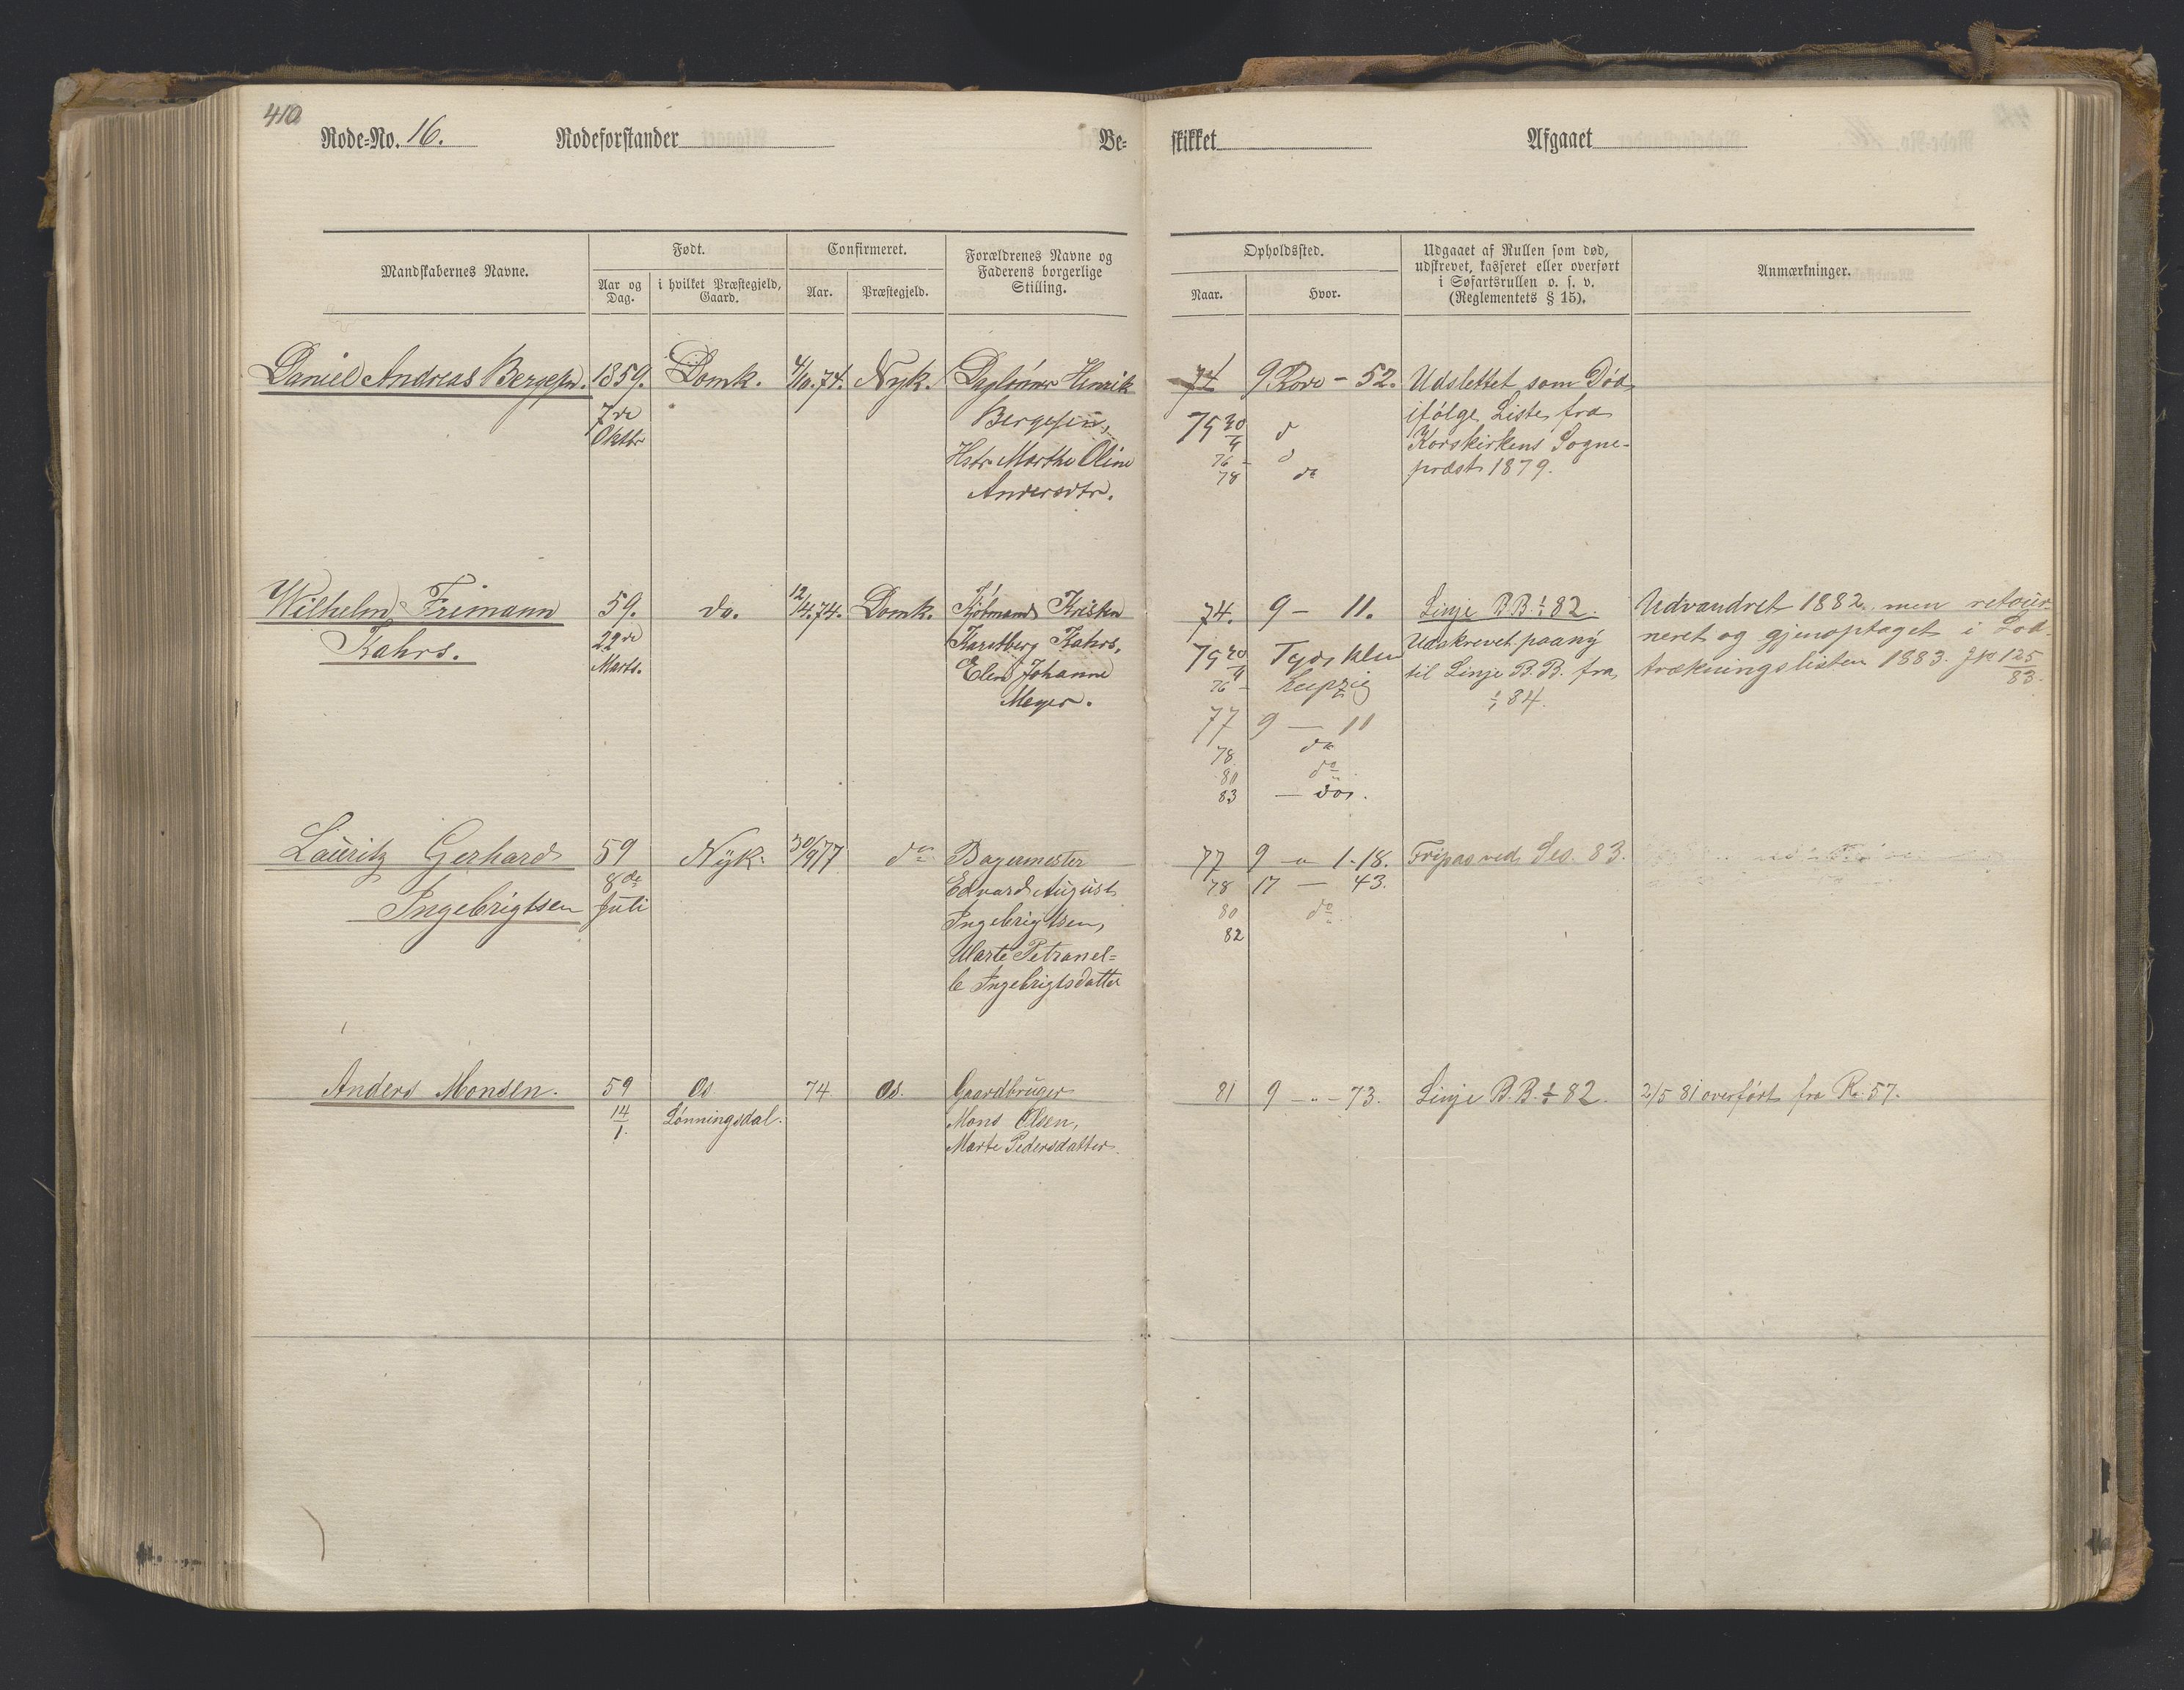 410
Rode-No. 16. Rodeforstander Be-
skikket Afgaaet
Mandskabernes Navne.
Født.
Aar og
Dag.
i hvilket Præstegjeld,
Gaard.
Confirmeret.
Aar.
Præstegjeld.
Forældrenes Navne og
Faderens borgerlige
Stilling.
Opholdssted.
Naar.
Hvor.
Udgaaet af Rullen som død,
udskrevet, kasseret eller overført
i Søfartsrullen o. s. v.
(Reglementets § 15).
Anmærkninger.
Daniel Andreas Bergesen.
1859.
7de
Oktbr
Domk.
4/10.74.
Nyk.
Daglønner Henrik
Bergesen,
Hstr Marthe Oline
Andersdtr.
74
9 Rode - 52.
75 20/4 d
76 - d
78 do
Udslettet som Død
ifølge Liste fra
Korskirkens Sogne-
præst 1879.
Wilhelm Frimann
Kahrs.
59.
22de
Marts.
do.
12/4.74.
Domk.
Kjøbmand Kristen
Karstberg Kahrs,
Elen Johanne
Meyer.
74. 9 - 11.
75 20/4 Tydskland
76 - Leipzig
77 9 - 11
78 do
80 do
83 - do.
Linje B.B. 1/1 82.
Udskrevet paany
til Linje B.B. fra
1/1 84.
Udvandret 1882, men retour-
neret og gjenoptaget i Lod-
trækningslisten 1883. 125/83.
Lauritz Gerhard
Ingebrigtsen
59
8de
Juli
Nyk.
30/9 77
do
Bagermester
Edvard August
Ingebrigtsen,
Marte Petranel=
le Ingebrigtsdatter
77 9 - 1-18.
78 17 - 43.
80 do
82
Fripas ved Ses. 83.
Anders Monsen.
59
14/1.
Os
Lønningsdal.
74
Os.
Gaardbruger
Mons Olsen,
Marte Pedersdatter.
81 9 - " - 73.
Linje B.B. 1/1 82.
2/5 81 overført fra Ro. 57.